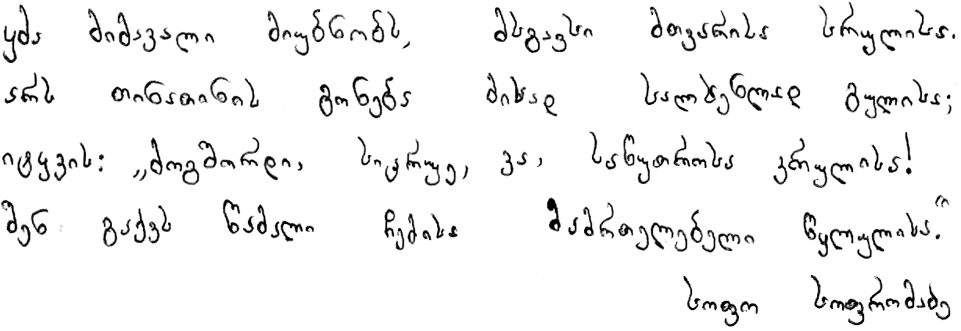 ყმა მიმავალი მიუბნობს, მსგავსი მთვარისა სრულისა.
არს თინათინის გონება მისად სალხენლად გულისა;
იტყვის: „მოგშორდი, სიცრუე, ვა, საწუთროსა კრულისა!
შენ გაქვს წამალი ჩემისა მამრთელებელი წყლულისა.“
სოფო სოფრომაძე